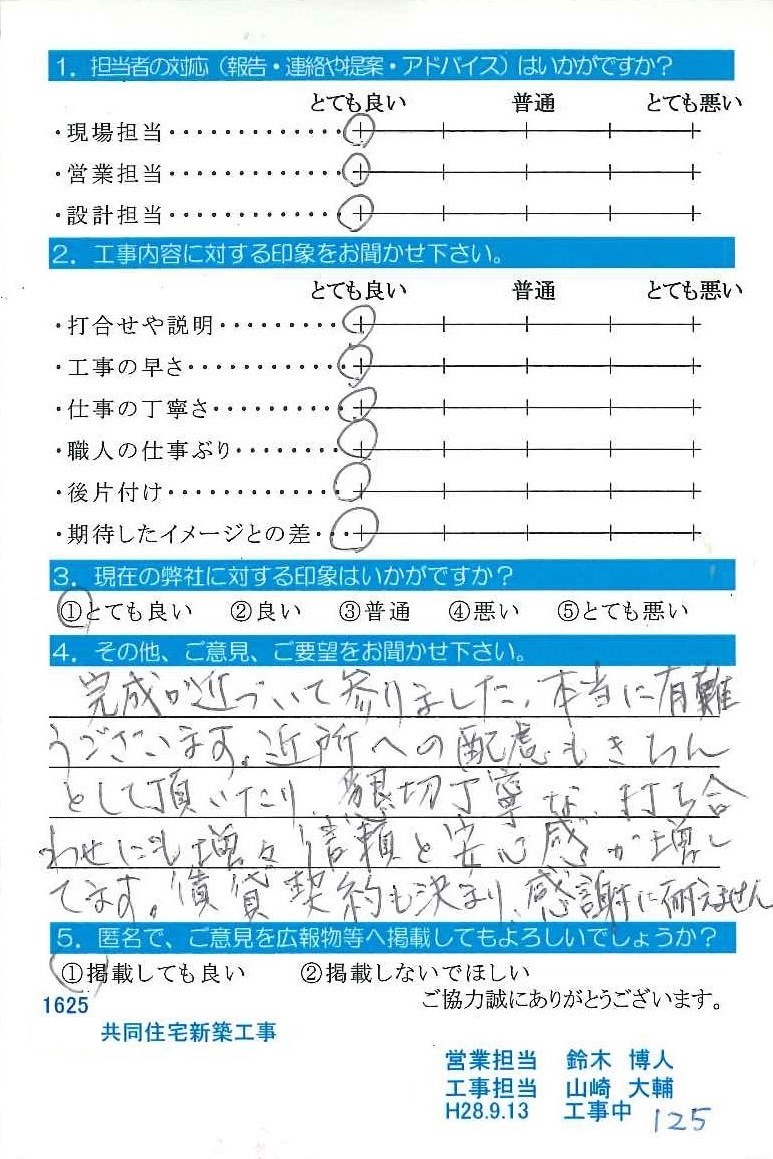 1．担当者の対応（報告・連絡や提案・アドバイス）はいかがですか？
とても良い 普通 とても悪い
・現場担当・・・・・・・・・・・・・
・営業担当・・・・・・・・・・・・・
・設計担当・・・・・・・・・・・・・
2．工事内容に対する印象をお聞かせ下さい。
とても良い 普通 とても悪い
・打合せや説明・・・・・・・・・
・工事の早さ・・・・・・・・・・・
・仕事の丁寧さ・・・・・・・・・
・職人の仕事ぶり・・・・・・・・
・後片付け・・・・・・・・・・・・
・期待したイメージとの差・・・
3．現在の弊社に対する印象はいかがですか？
①とても良い ②良い ③普通 ④悪い ⑤とても悪い
4．その他、ご意見、ご要望をお聞かせ下さい。
完成が近づいて参りました、本当に有難
うございます。近所への配慮もきちん
として頂いたり、懇切丁寧な打ち合
わせにも増々信頼と安心感が増し
てます。賃貸契約も決まり、感謝に耐えません
5．匿名で、ご意見を広報物等へ掲載してもよろしいでしょうか？
①掲載しても良い ②掲載しないでほしい
1625 ご協力誠にありがとうございます。
共同住宅新築工事
営業担当 鈴木 博人
工事担当 山崎 大輔
H28.9.13 工事中 125